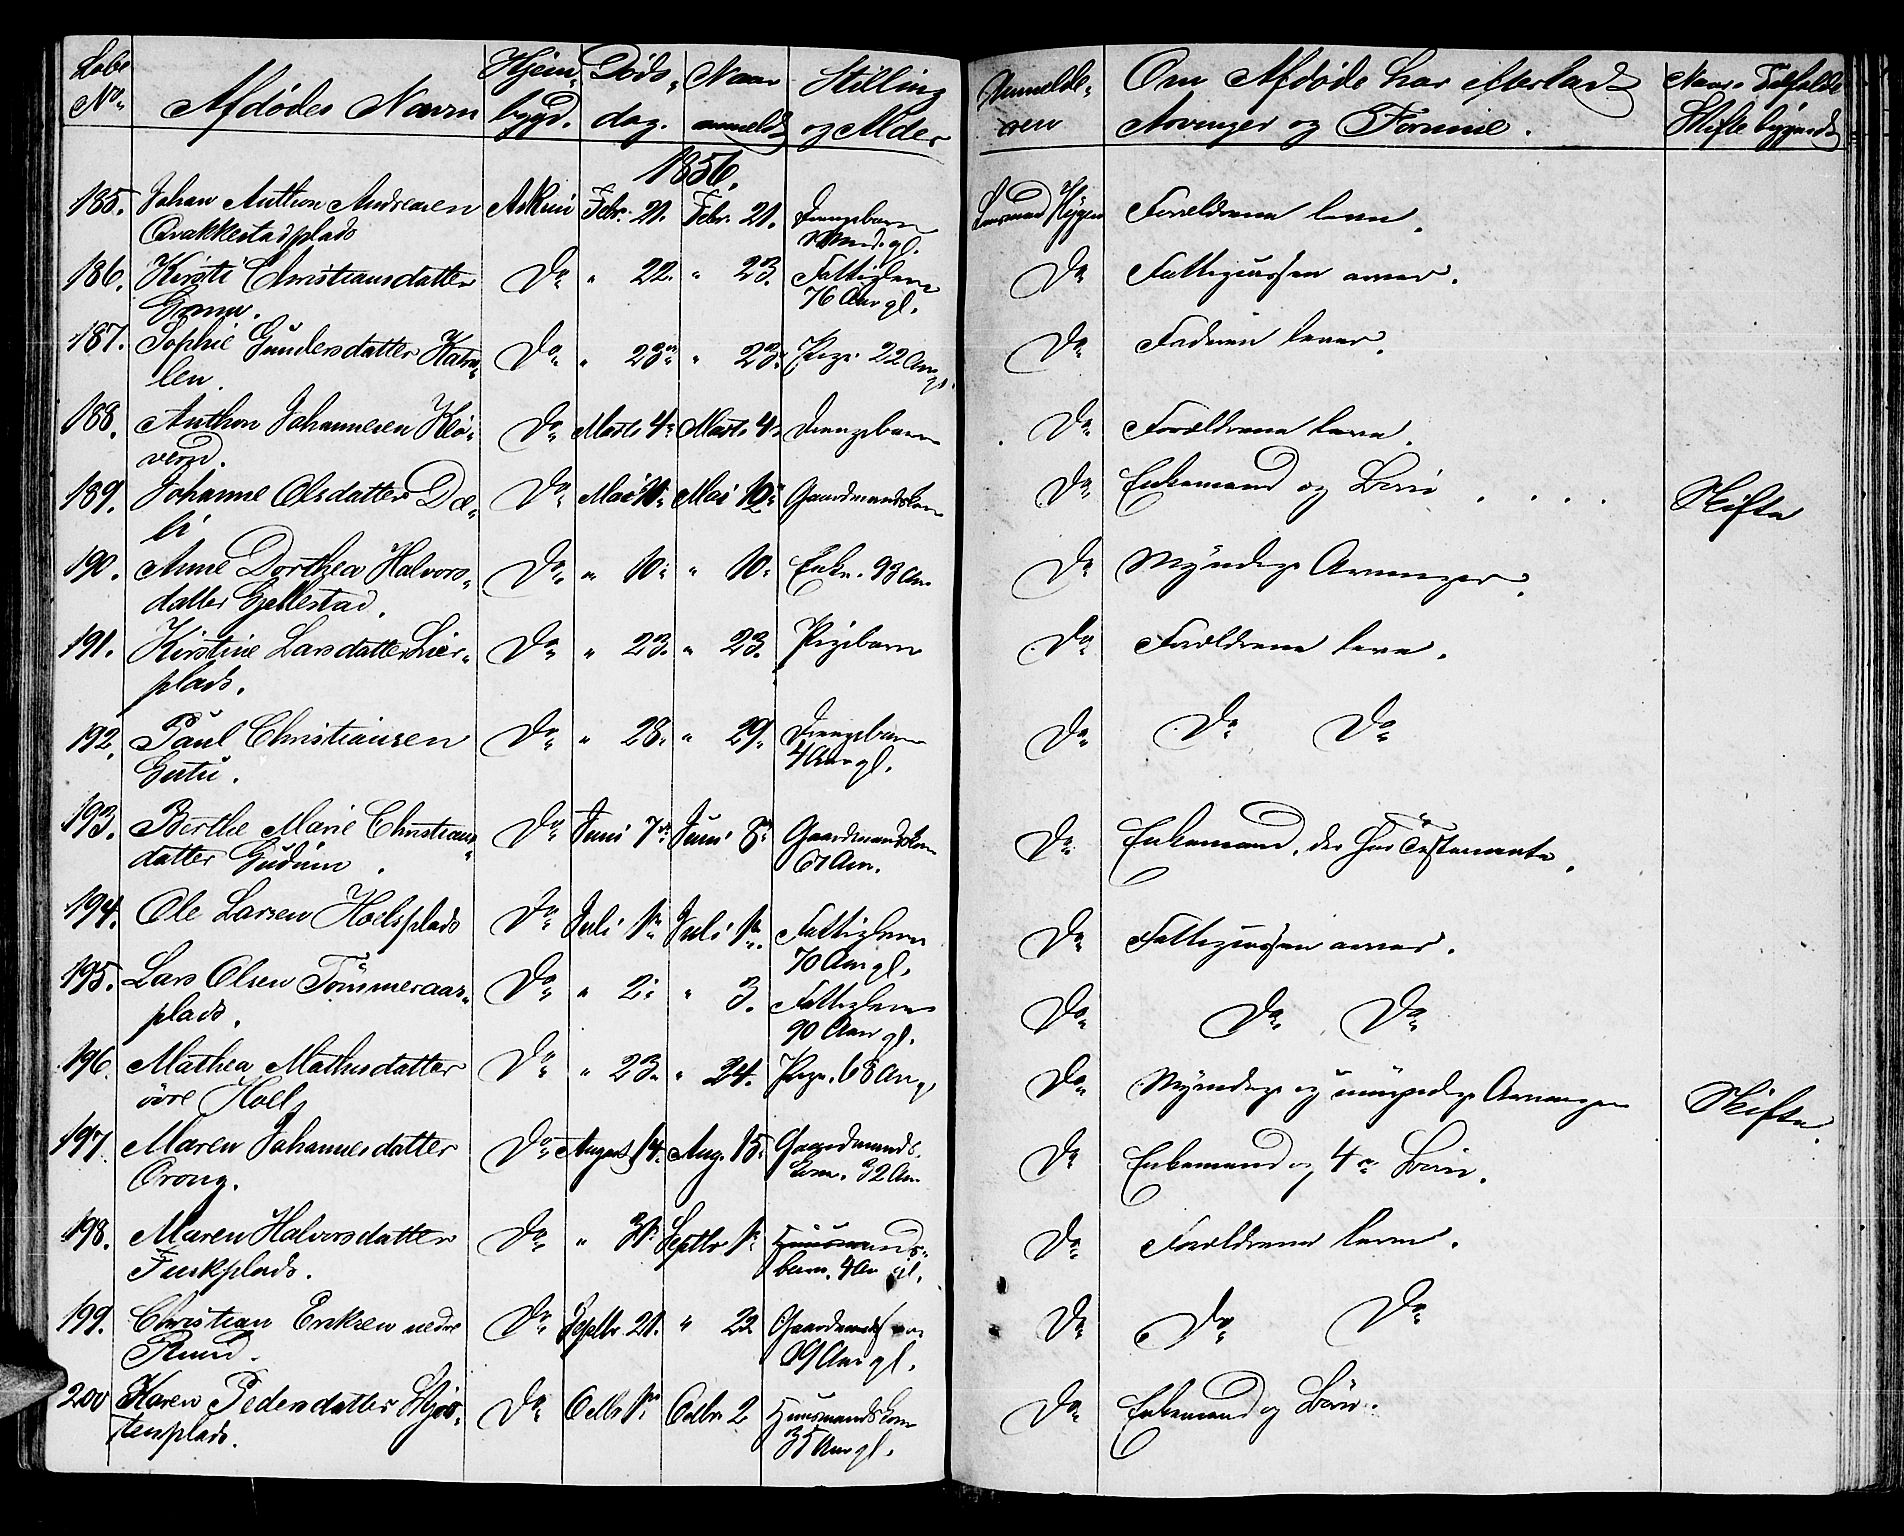 Løbe Afdødes Navn Hjem- Døds- Naar Stilling Anmelde- Om Afdøde har efterladt Naar i Tilfælde
No bygd. dag. anmeldt og Alder ren Arvinger og Formue. Skifte begyndt
1856.
185. Johan Anthon Andresen Askim Febr. 21. Febr. 21. Drengebarn Lensmand Forældrene leve.
plads gl.
186. Kirsti Christiansdatter Do " 22. " 23. Fattiglem Do Fattigvæsen arver.
76 Aar gl.
187. Sophie Gundersdatter Do " 23 " 23. Pige 22 Aar Do Faderen lever.
len. gl.
188. Anthon Johannesen Klø- Do Marts 4 Marts 4 Drengebarn Do Forældrene leve.
verud.
189. Johanne Olsdatter Dæ- Do Mai Mai Gaardmandskone Do Enkemand og Børn . . . . Skifte
li
190. Anne Dorthea Halvors- Do " 10 " 10 Enke. 93 Aar Do Myndige Arvinger.
datter Gjellestad.
191. Kirstine Larsdatter Lier- Do " 23. " 23. Pigebarn Do Forældrene leve.
plads.
192. Paul Christiansen Do " 28. " 29. Drengebarn Do Do Do
4 Aar gl.
193. Berthe Marie Christians- Do Juni 7 Juni 8 Gaardmandskone Do Enkemand, der har Testamente.
datter Gudim. Aar.
194. Ole Larsen Hoelsplads Do Juli 1 Juli 1 Fattiglem Do Fattigvæsen arver.
70 Aar gl.
195. Lars Olsen Tömmeraas- Do " 2 " 3. Fattiglem Do Do Do
plads. 90 Aar gl.
196. Mathea Mathisdatter Do " 23. " 24. Pige. 68 Aar gl Do Myndige og umyndige Arvinger Skifte.
övre Hoel
197. Maren Johannesdatter Do August 14. Aug. 15. Gaardmands- Do Enkemand og 4 Børn.
Grong. kone. 32 Aar
198. Maren Halvorsdatter Do " 31 Septbr 1 Huusmands- Do Forældrene leve.
Fuskplads. barn. 4 Aar gl.
199. Christian Eriksen nedre Do Septbr. 21. " 22 Gaardmands Do Do Do
Ruud. 19 Aar gl.
200 Karen Pedersdatter Skjø- Do Octbr 1 Octbr. 2 Huusmandskone Do Enkemand og Børn.
tenplads. 35 Aar gl.